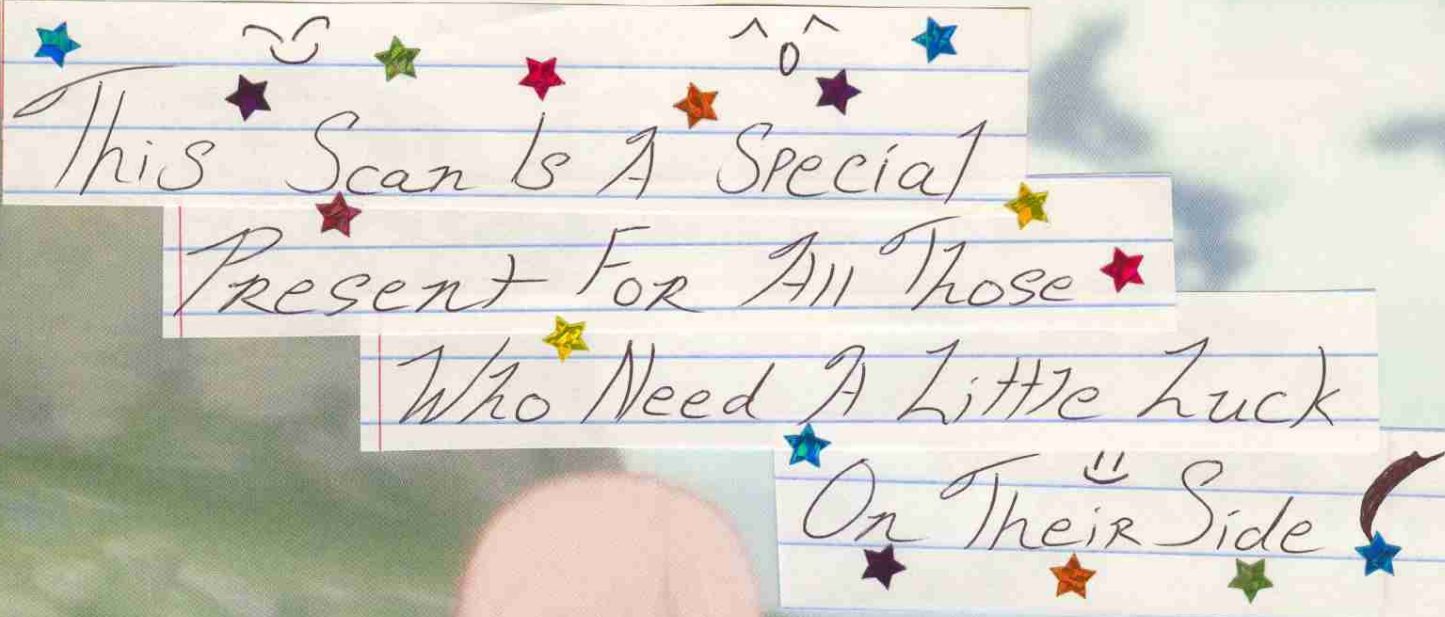 This Scan Is A Special
Present For All Those
Who Need A Little Luck
On Their Side